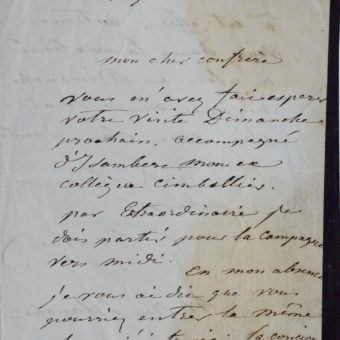 mon cher confrere
vous m'avez fait esperer
votre visite Dimanche
prochain, accompagné
d'Isambert mon ex
collègue
par Extraordinaire je
dois partir pour la campagne
vers midi.
En mon absence
je vous ai dit que vous
pourriez entrer la même